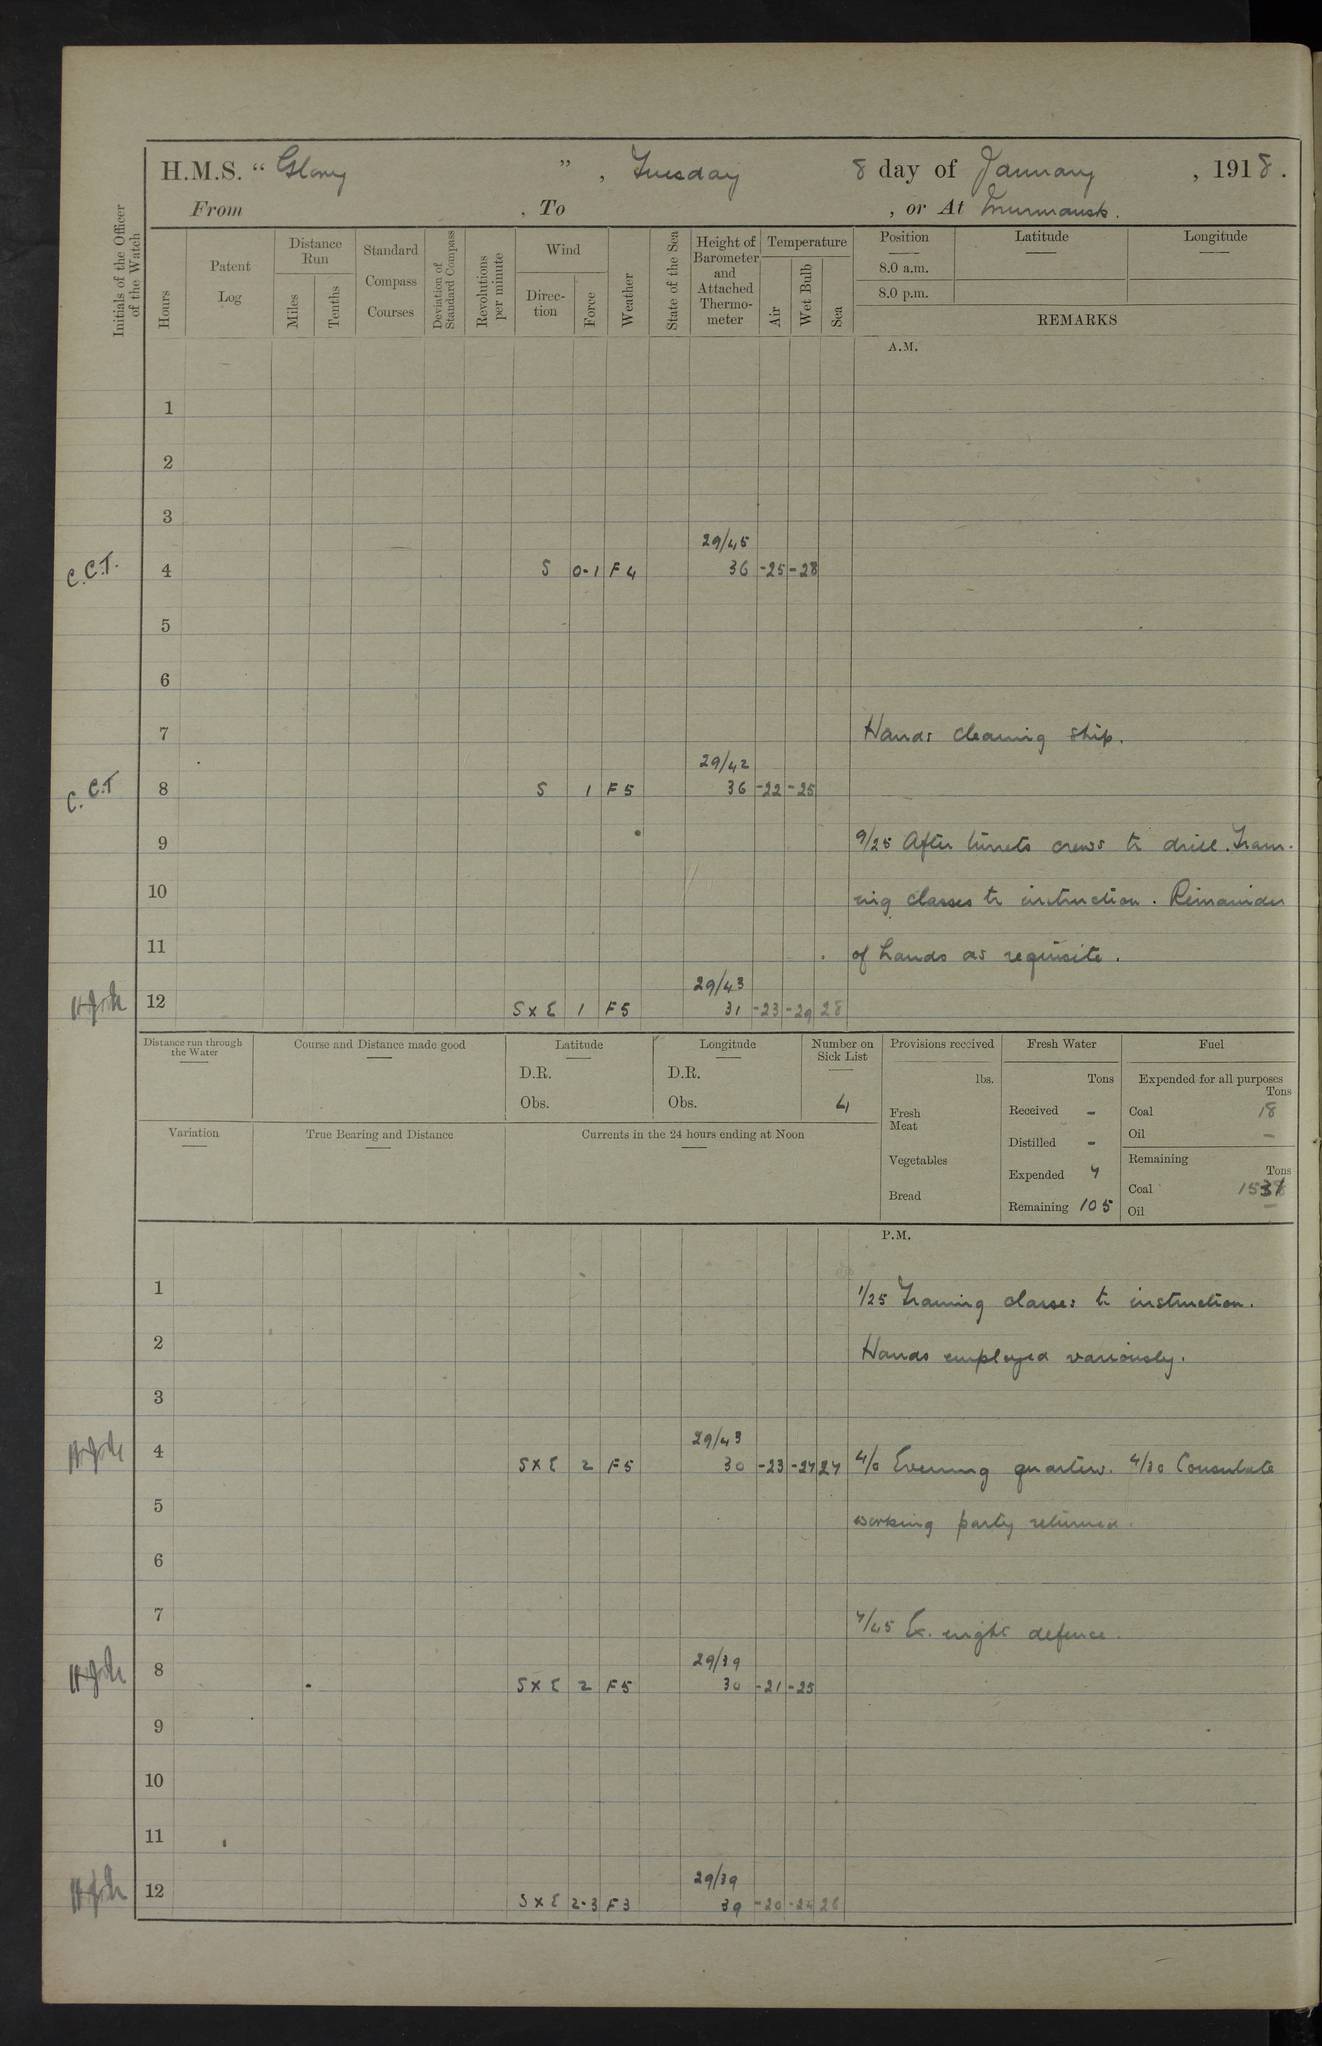 H.M.S. “ Glory ” , Tuesday 8 day of January , 1918 .
From , To , or At Murmansk.
Initials of the Officer of the Watch
Hours
Patent Log
Distance Run
Miles
Tenths
Standard Compass Courses
Deviation of Standard Compass
Revolutions per minute
Wind
Direc-tion
Force
Weather
State of the Sea
Height of Barometer and Attached Thermo-meter
Temperature
Air
Wet Bulb
Sea
Position
Latitude
Longitude
8.0 a.m.
8.0 p.m.
REMARKS
A.M.
1
2
3
29/45
C.C.T. 4 S 0-1 F 4 36 -25 -28
5
6
7 Hands cleaning ship.
29/42
C.C.T 8 S 1 F 5 36 -22 -25
9 9/25 After turrets crews to drill. Train-
10 ing classes to instruction. Remainder
11 of hands as requisite.
29/43
12 S x E 1 F5 31 -23 -29 28
Distance run through the Water
Course and Distance made good
Latitude
D.R.
Obs.
Longitude
D.R.
Obs.
Number on Sick List
4
Provisions received
lbs.
Fresh Meat
Vegetables
Bread
Fresh Water
Tons
Received -
Distilled -
Expended 7
Remaining 105
Fuel
Expended for all purposes
Tons
Coal 18
Oil -
Remaining
Tons
Coal
Oil -
Variation
True Bearing and Distance
Currents in the 24 hours ending at Noon
P.M.
1 1/25 Training classes to instruction.
2 Hands employed variously.
3
29/43
4 S x E 2 F5 30 -23 -27 27 4/0 Evening quarters. 4/30 Consulate
5 working party returned.
6
7 7/45 Ex. night defence.
29/39
8 S x E 2 F5 30 -21 -25
9
10
11
29/39
12 S x E 2-3 F3 39 -20 -24 26